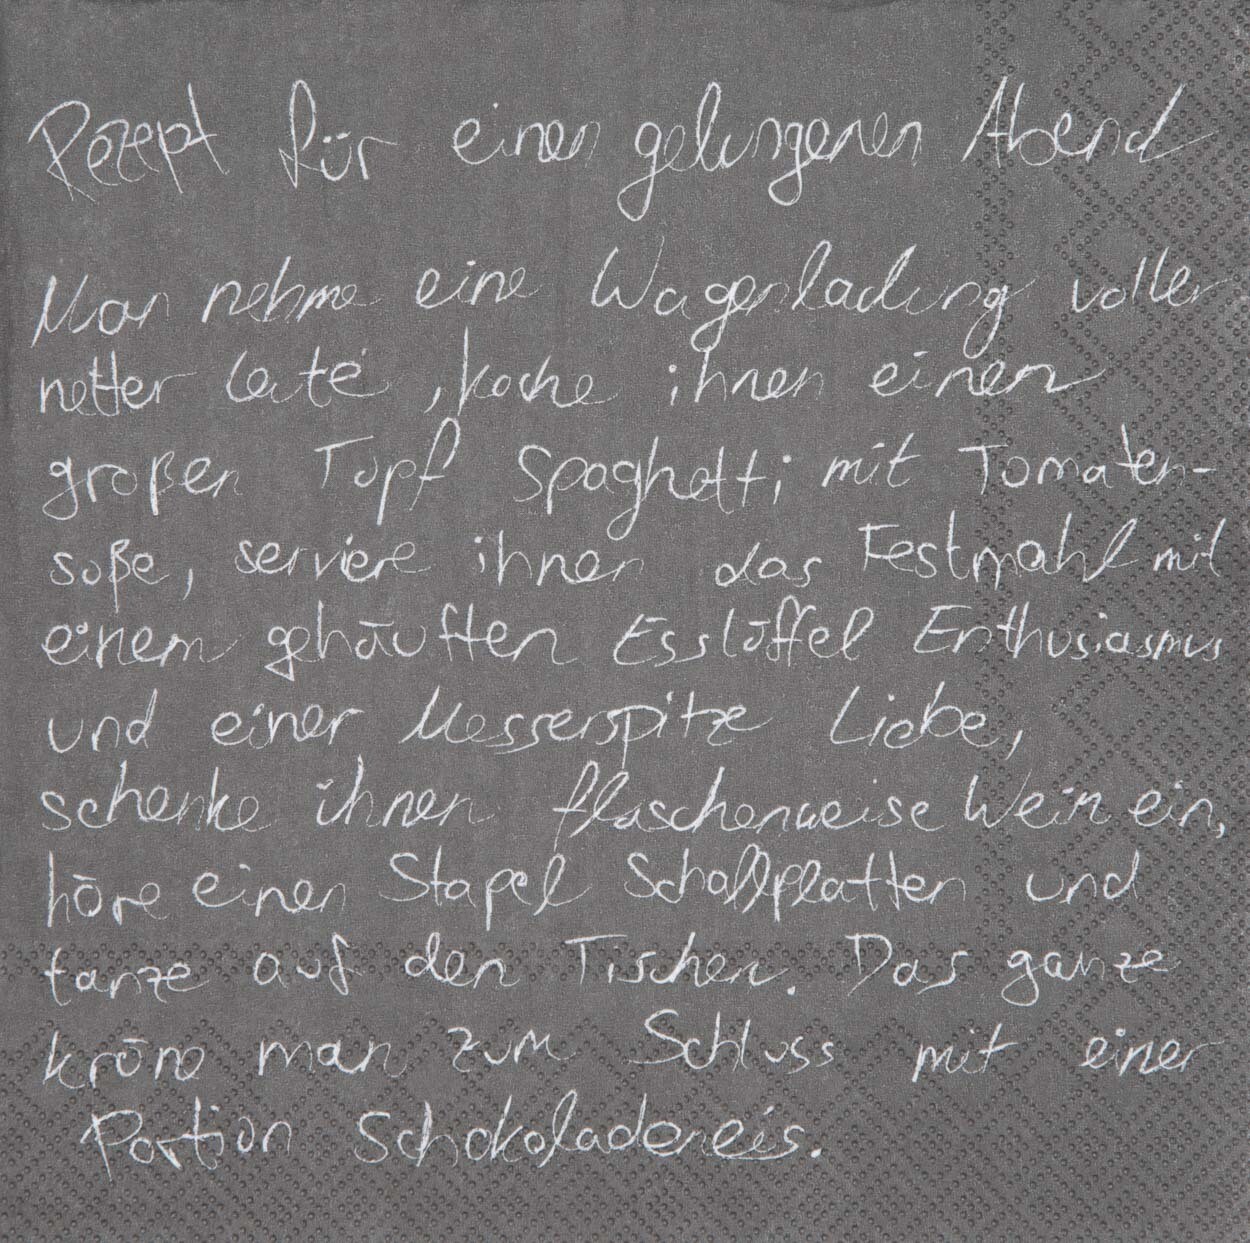 Rezept für einen gelungenen Abend
Man nehme eine Wagenladung voller
netter Leute, koche ihnen einen
großen Topf Spaghetti mit Tomaten-
soße, serviere ihnen das Festmahl mit
einem gehäuften Esslöffel Enthusiasmus
und einer Messerspitze Liebe,
schenke ihnen flaschenweise Wein ein,
höre einen Stapel Schallplatten und
tanze auf den Tischen. Das ganze
kröne man zum Schluss mit einer
Portion Schokoladeneis.